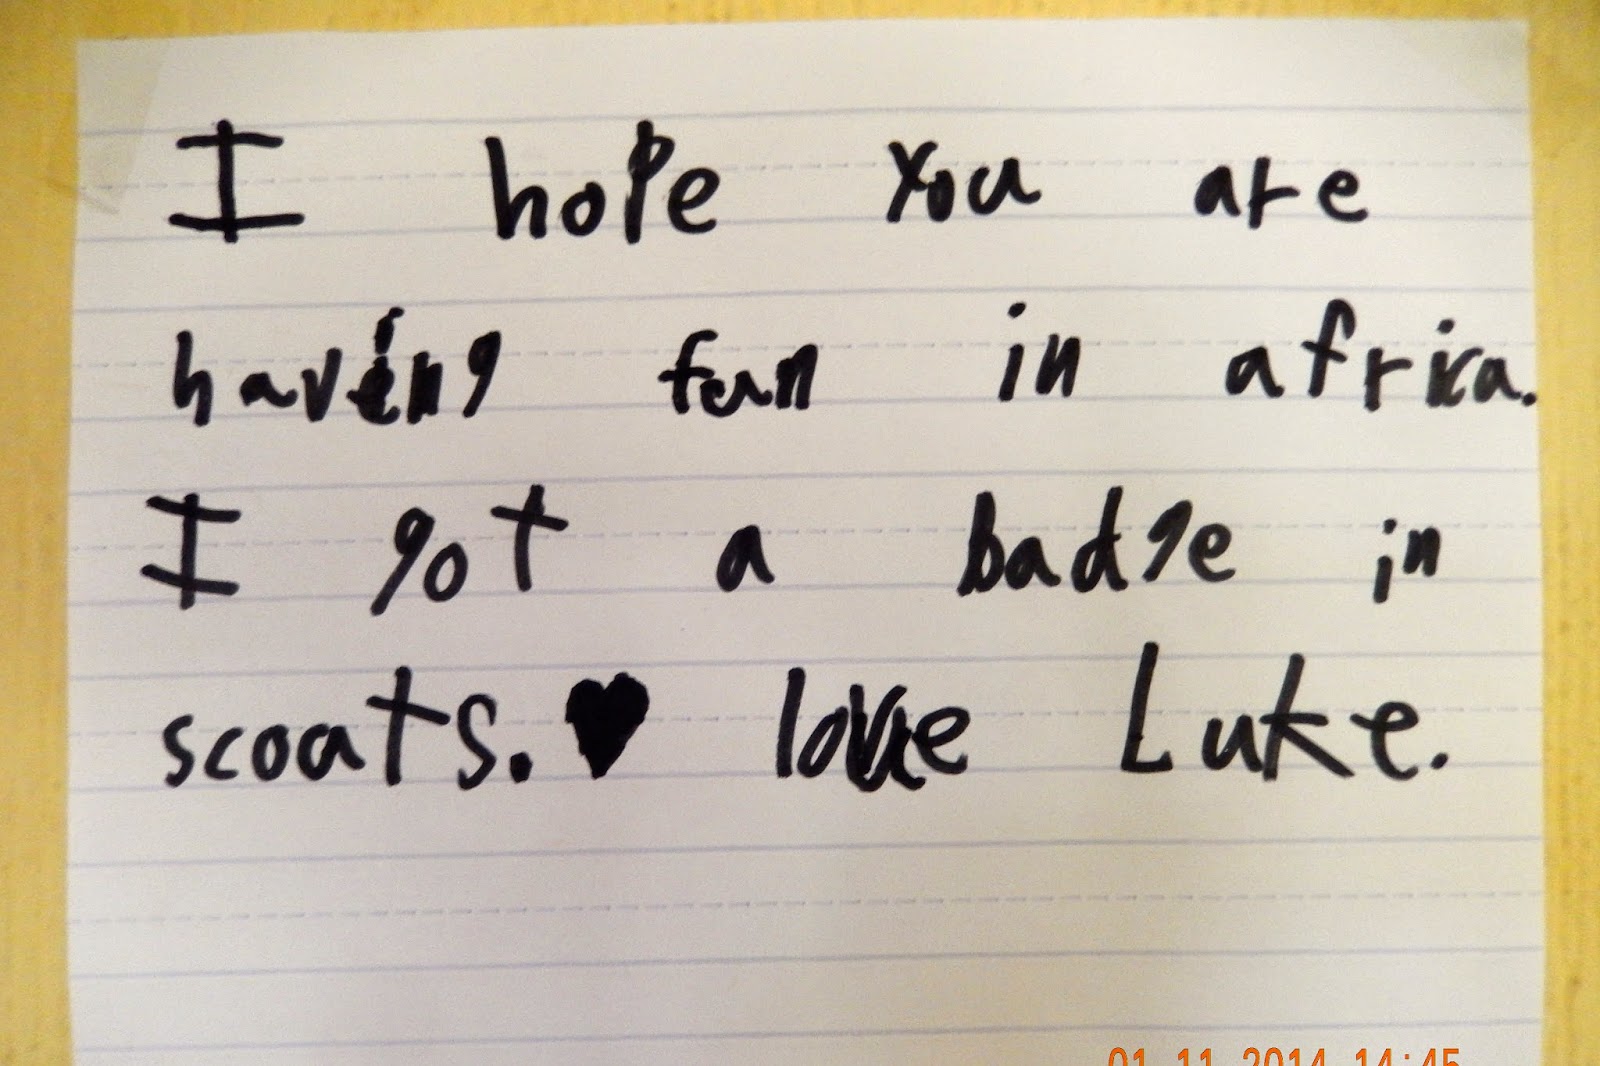 I hope you are
having fun in africa.
I got a badge in
scouts.♥ love Luke.
01.11.2014 14:45